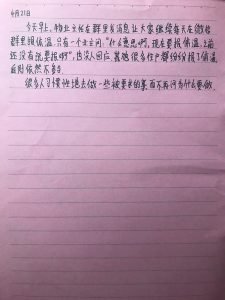 4月21日
今天早上,物业主任在群里发消息让大家继续每天在微信
群里报体温。只有一个业主问:"什么意思啊,现在要报体温,之前
还没有说要报啊",也没人回应,其他很多住户都纷纷报了体温,
自时依然不多。
很多人习惯性地去做一些被要求的事而不再问为什么要做。